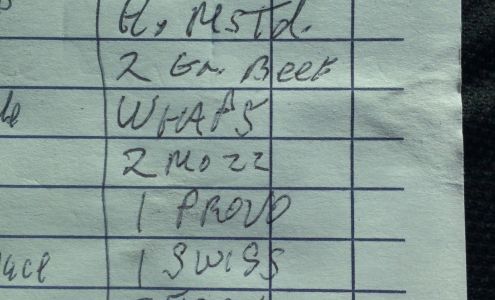 H. MSTd.
2 Gr. Beef
WRAPS
2 MOZZ
1 PROVO
1 SWISS